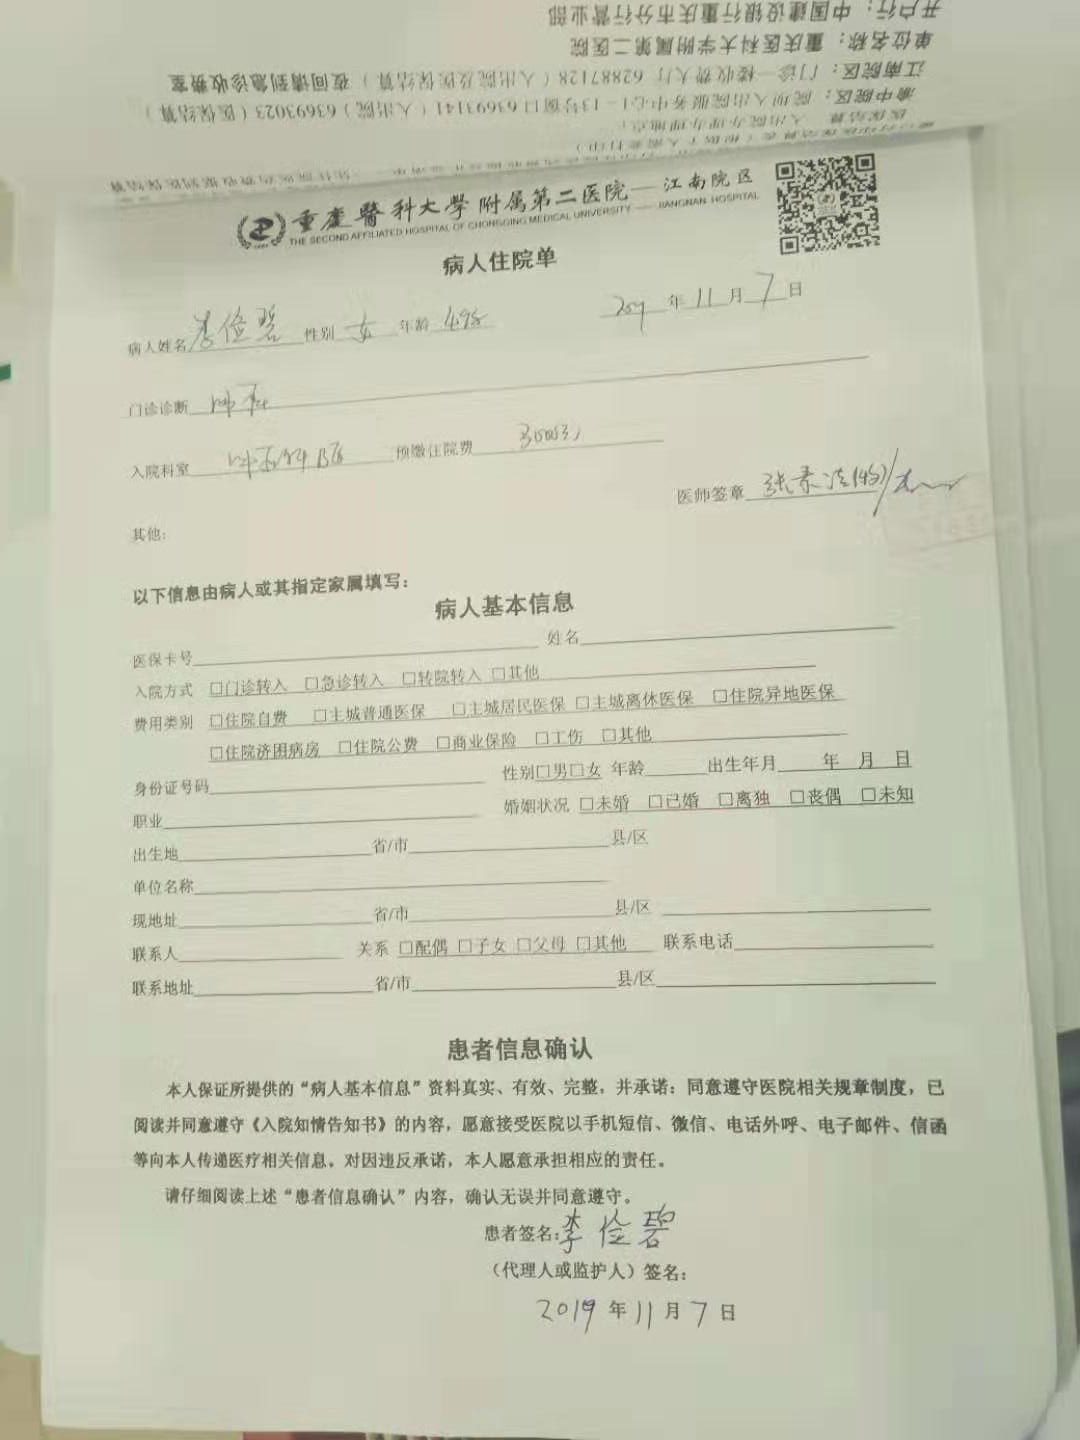 开户行：中国建设银行重庆市分行营业部
单位名称：重庆医科大学附属第二医院
江南院区：门诊一楼收费大厅 62887128（入出院及医保结算）夜间请到急诊收费室
渝中院区：院坝入出院服务中心1-13号窗口 63693141（入出院）63693023（医保结算）
重庆醫科大學附属第二医院——江南院区
THE SECOND AFFILIATED HOSPITAL OF CHONGQING MEDICAL UNIVERSITY —— JIANGNAN HOSPITAL
病人住院单
2019年11月7日
病人姓名 李俭碧 性别 女 年龄 49岁
门诊诊断
入院科室 预缴住院费
医师签章
其他：
以下信息由病人或其指定家属填写：
病人基本信息
医保卡号 姓名
入院方式 □门诊转入 □急诊转入 □转院转入 □其他
费用类别 □住院自费 □主城普通医保 □主城居民医保 □主城离休医保 □住院异地医保
□住院济困病房 □住院公费 □商业保险 □工伤 □其他
身份证号码 性别□男□女 年龄 出生年月 年 月 日
职业 婚姻状况 □未婚 □已婚 □离独 □丧偶 □未知
出生地 省/市 县/区
单位名称
现地址 省/市 县/区
联系人 关系 □配偶 □子女 □父母 □其他 联系电话
联系地址 省/市 县/区
患者信息确认
本人保证所提供的“病人基本信息”资料真实、有效、完整，并承诺：同意遵守医院相关规章制度，已
阅读并同意遵守《入院知情告知书》的内容，愿意接受医院以手机短信、微信、电话外呼、电子邮件、信函
等向本人传递医疗相关信息。对因违反承诺，本人愿意承担相应的责任。
请仔细阅读上述“患者信息确认”内容，确认无误并同意遵守。
患者签名：李俭碧
（代理人或监护人）签名：
2019年11月7日